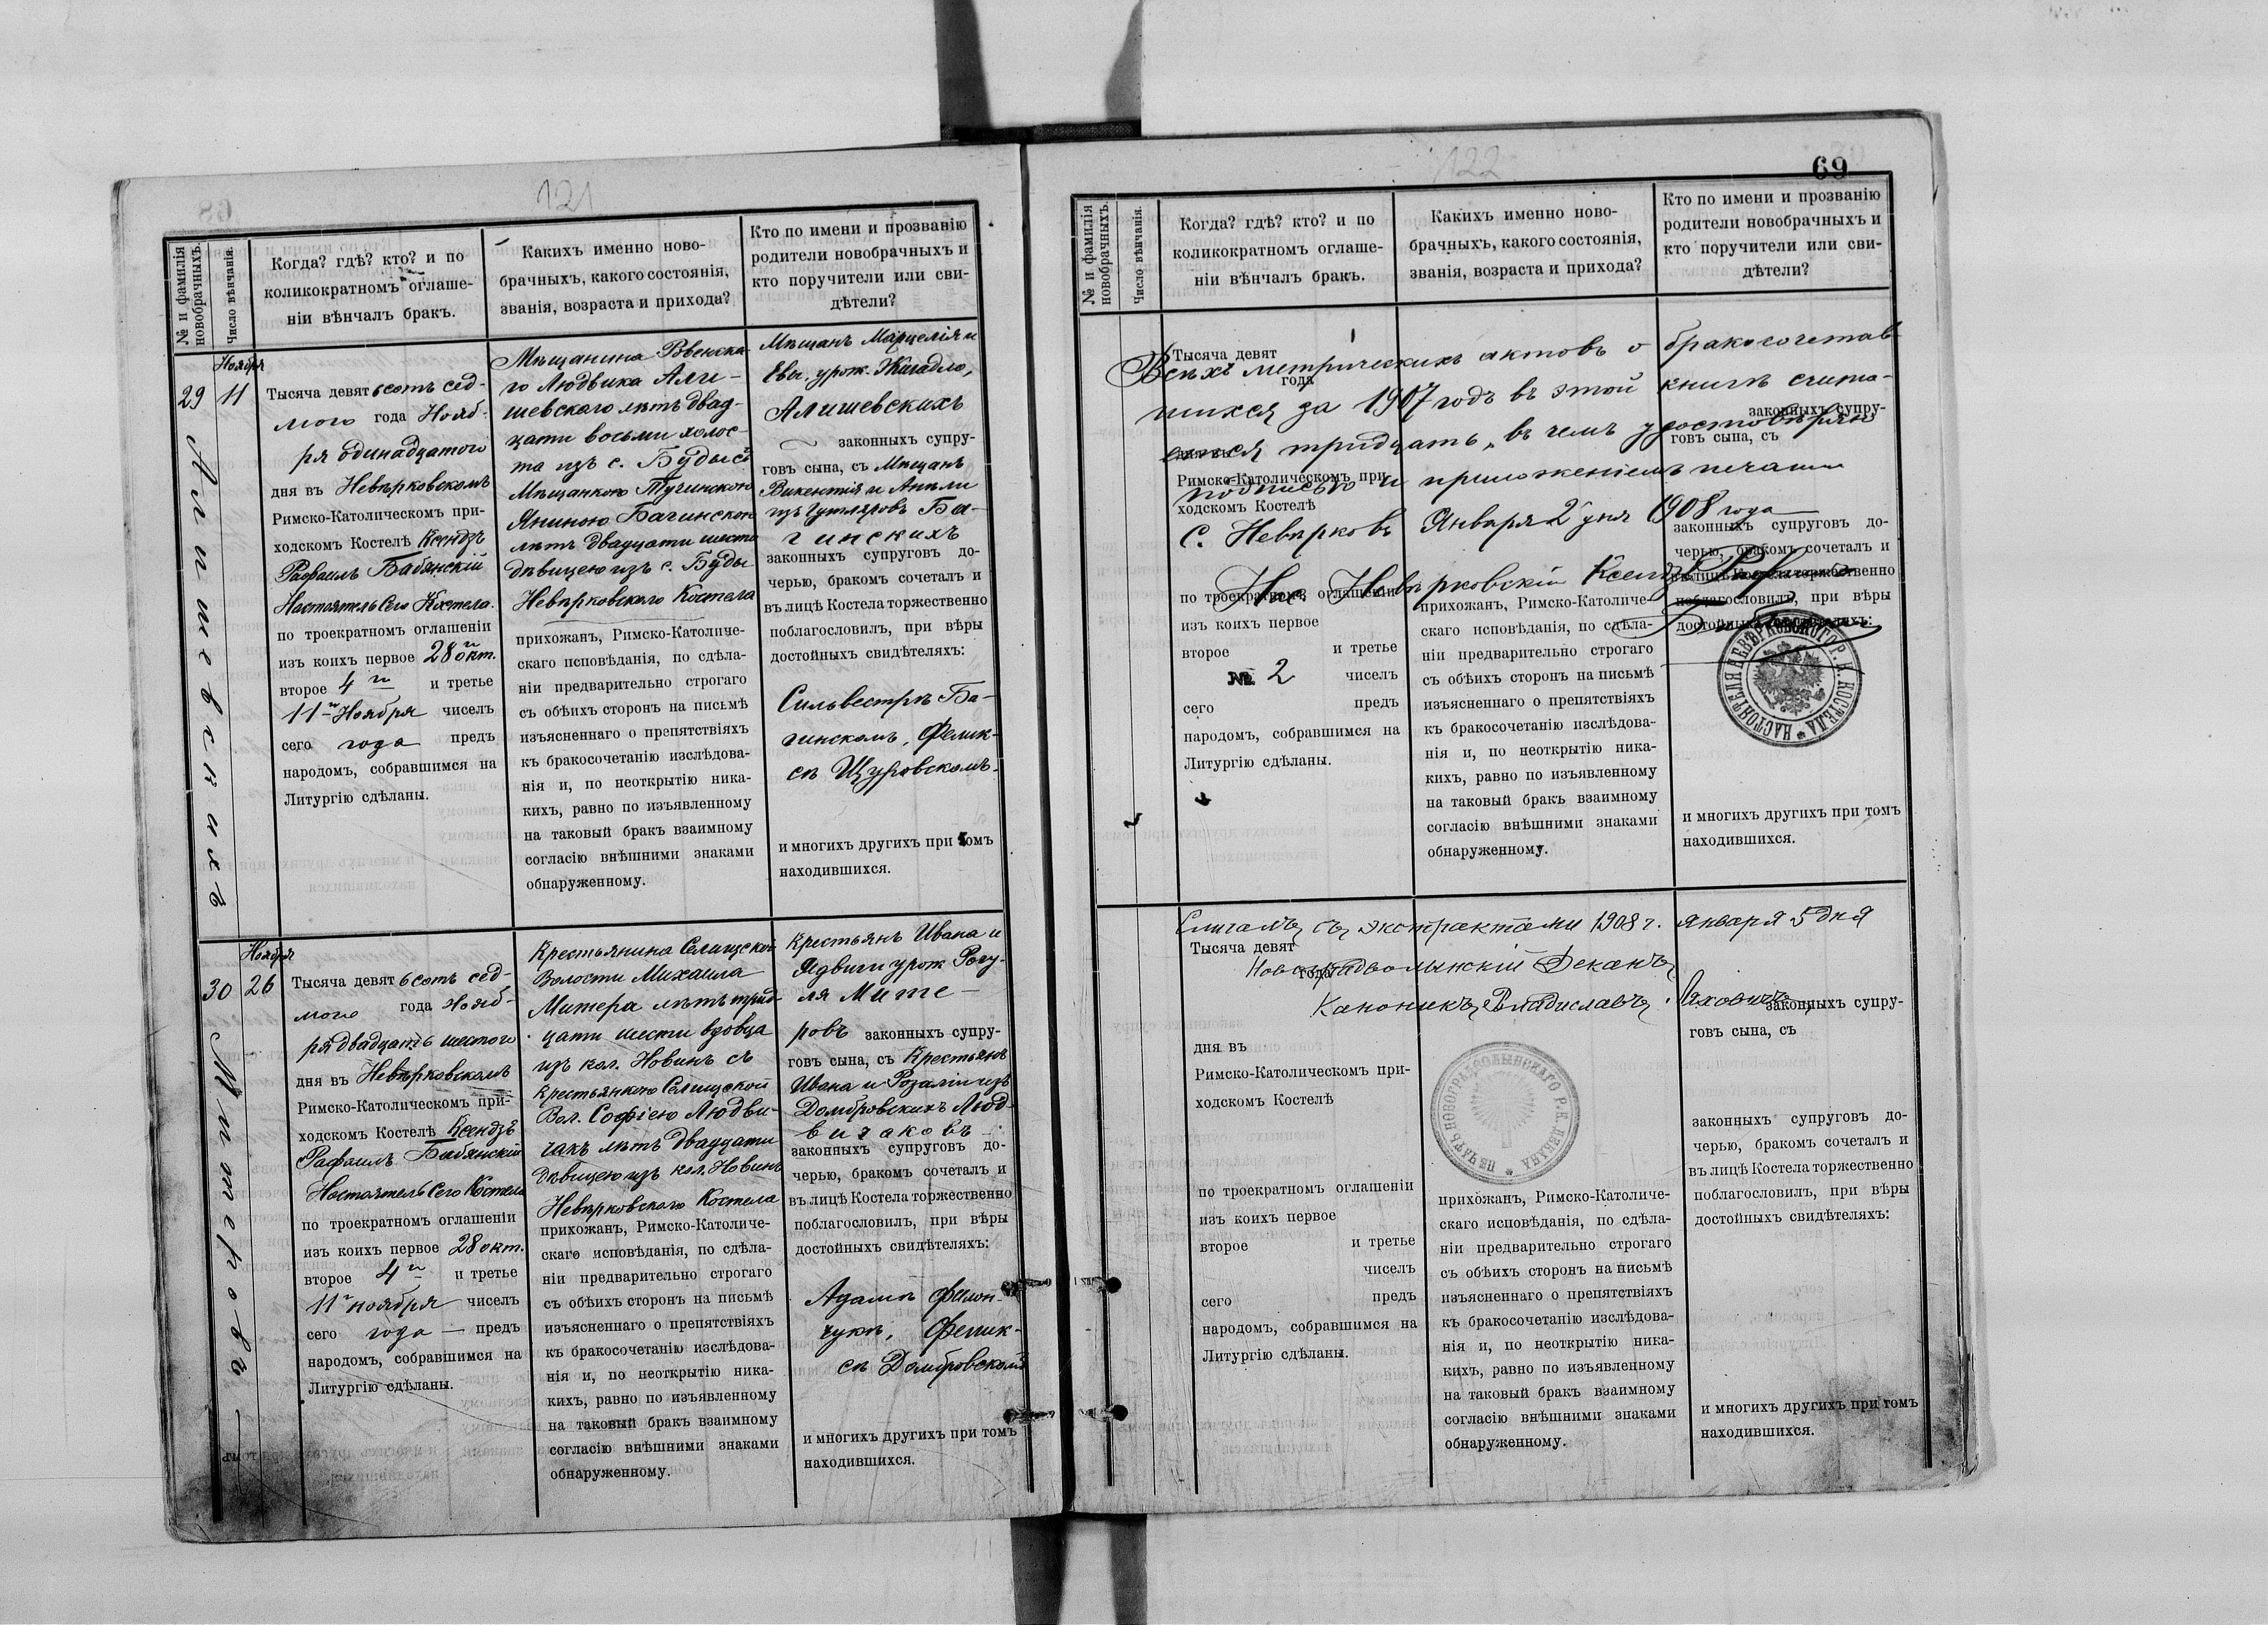 121
№ и фамилія
новобрачныхъ.
Число вѣнчанія.
Когда? гдѣ? кто? и по
коликократномъ оглаше-
ніи вѣнчалъ бракъ.
Какихъ именно ново-
брачныхъ, какого состоянія,
званія, возраста и прихода?
Кто по имени и прозванію
родители новобрачныхъ и
кто поручители или сви-
дѣтели?
29
Алишевскихъ
Ноября
11
Тысяча девятьсотъ сед-
мого года Нояб-
ря одинадцатого
дня въ Невѣрковскомъ
Римско-Католическомъ при-
ходскомъ Костелѣ Ксендзъ
Рафаилъ Бабянскій
Настоятель Сего Костела.
по троекратномъ оглашеніи
изъ коихъ первое 28 окт.
второе 4 и третье
11 Ноября чиселъ
сего года предъ
народомъ, собравшимся на
Литургію сдѣланы.
Мѣщанина Ровенска-
го Людвика Али-
шевскаго лѣтъ двад-
цати восьми холос-
та изъ с. Буды съ
Мѣщанкою Тучинскою
Яниною Багинскою
лѣтъ двадцати шести
дѣвицею изъ с. Буды
Невѣрковскаго Костела
прихожанъ, Римско-Католиче-
скаго исповѣданія, по сдѣла-
ніи предварительно строгаго
съ обѣихъ сторонъ на письмѣ
изъясненнаго о препятствіяхъ
къ бракосочетанію изслѣдова-
нія и, по неоткрытію ника-
кихъ, равно по изъявленному
на таковый бракъ взаимному
согласію внѣшними знаками
обнаруженному.
Мѣщанъ Марцелія и
Евы урож. Жигадло,
Алишевскихъ
законныхъ супру-
говъ сына, съ Мѣщанъ
Викентія и Анели
изъ Гутляровъ Ба-
гинскихъ
законныхъ супруговъ до-
черью, бракомъ сочеталъ и
въ лицѣ Костела торжественно
поблагословилъ, при вѣры
достойныхъ свидѣтеляхъ:
Сильвестрѣ Ба-
гинскомъ, Фелик-
сѣ Щуровскомъ.
и многихъ другихъ при томъ
находившихся.
30
Митеровъ
Ноября
26
Тысяча девятьсотъ сед-
мого года Нояб-
ря двадцать шестого
дня въ Невѣрковскомъ
Римско-Католическомъ при-
ходскомъ Костелѣ Ксендзъ
Рафаилъ Бабянскій
Настоятель Сего Костела
по троекратномъ оглашеніи
изъ коихъ первое 28 окт.
второе 4 и третье
11 ноября чиселъ
сего года предъ
народомъ, собравшимся на
Литургію сдѣланы.
Крестьянина Селищской
Волости Михаила
Митера лѣтъ трид-
цати шести вдовца
изъ кол. Новинъ съ
Крестьянкою Селищской
Вол. Софіею Людви-
чакъ лѣтъ двадцати
дѣвицею изъ кол. Новинъ
Невѣрковскаго Костела
прихожанъ, Римско-Католиче-
скаго исповѣданія, по сдѣла-
ніи предварительно строгаго
съ обѣихъ сторонъ на письмѣ
изъясненнаго о препятствіяхъ
къ бракосочетанію изслѣдова-
нія и, по неоткрытію ника-
кихъ, равно по изъявленному
на таковый бракъ взаимному
согласію внѣшними знаками
обнаруженному.
Крестьянъ Ивана и
Ядвиги урож. Рогу-
ля Мите-
ровъ законныхъ супру-
говъ сына, съ Крестьянъ
Ивана и Розаліи изъ
Домбровскихъ Люд-
вичаковъ
законныхъ супруговъ до-
черью, бракомъ сочеталъ и
въ лицѣ Костела торжественно
поблагословилъ, при вѣры
достойныхъ свидѣтеляхъ:
Адамѣ Филон-
чукѣ, Фелик-
сѣ Домбровскомъ
и многихъ другихъ при томъ
находившихся.
122
69
№ и фамилія
новобрачныхъ.
Число вѣнчанія.
Когда? гдѣ? кто? и по
коликократномъ оглаше-
ніи вѣнчалъ бракъ.
Какихъ именно ново-
брачныхъ, какого состоянія,
званія, возраста и прихода?
Кто по имени и прозванію
родители новобрачныхъ и
кто поручители или сви-
дѣтели?
Всѣхъ метрическихъ актовъ о бракосочетав-
шихся за 1907 годъ въ этой книгѣ счита-
ется тридцать, въ чемъ удостовѣряю
подписью и приложеніемъ печати
С. Невѣрковъ Января 2 дня 1908 года
Нас. Невѣрковскій Ксендзъ
№ 2
Тысяча девят
года
дня въ
Римско-Католическомъ при-
ходскомъ Костелѣ
по троекратномъ оглашеніи
изъ коихъ первое
второе и третье
чиселъ
сего предъ
народомъ, собравшимся на
Литургію сдѣланы.
прихожанъ, Римско-Католиче-
скаго исповѣданія, по сдѣла-
ніи предварительно строгаго
съ обѣихъ сторонъ на письмѣ
изъясненнаго о препятствіяхъ
къ бракосочетанію изслѣдова-
нія и, по неоткрытію ника-
кихъ, равно по изъявленному
на таковый бракъ взаимному
согласію внѣшними знаками
обнаруженному.
законныхъ супру-
говъ сына, съ
законныхъ супруговъ до-
черью, бракомъ сочеталъ и
въ лицѣ Костела торжественно
поблагословилъ, при вѣры
достойныхъ свидѣтеляхъ:
НАСТОЯТЕЛЯ НЕВѢРКОВСКОГО Р. К. КОСТЕЛА
и многихъ другихъ при томъ
находившихся.
Считалъ съ экстрактами 1908 г. января 5 дня
Новоградволынскій Деканъ
Каноникъ Владиславъ Ляховичъ
Тысяча девят
года
дня въ
Римско-Католическомъ при-
ходскомъ Костелѣ
по троекратномъ оглашеніи
изъ коихъ первое
второе и третье
чиселъ
сего предъ
народомъ, собравшимся на
Литургію сдѣланы.
ПЕЧАТЬ НОВОГРАДВОЛЫНСКАГО Р. К. ДЕКАНА
прихожанъ, Римско-Католиче-
скаго исповѣданія, по сдѣла-
ніи предварительно строгаго
съ обѣихъ сторонъ на письмѣ
изъясненнаго о препятствіяхъ
къ бракосочетанію изслѣдова-
нія и, по неоткрытію ника-
кихъ, равно по изъявленному
на таковый бракъ взаимному
согласію внѣшними знаками
обнаруженному.
законныхъ супру-
говъ сына, съ
законныхъ супруговъ до-
черью, бракомъ сочеталъ и
въ лицѣ Костела торжественно
поблагословилъ, при вѣры
достойныхъ свидѣтеляхъ:
и многихъ другихъ при томъ
находившихся.